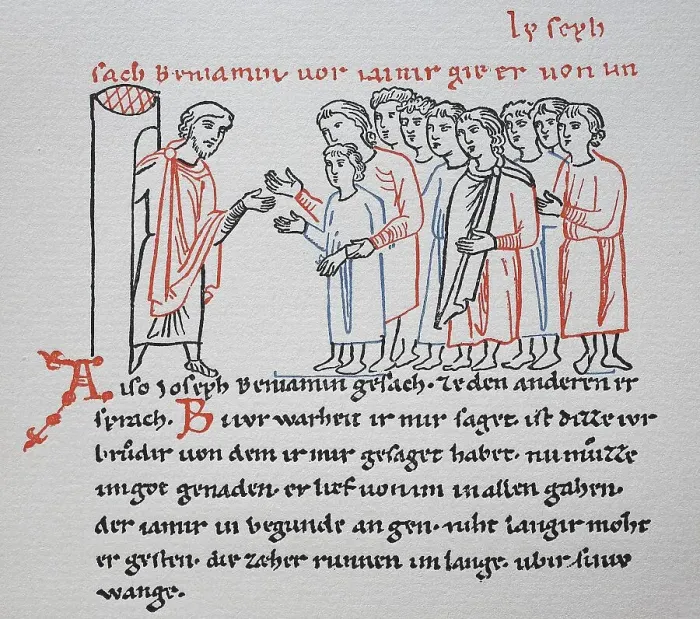 Ioseph
sach Beniamin vor iamir gie er von in
Also Joseph Beniamin gesach. Ze den anderen er
sprach. Bi iwr warheit ir mir saget. ist ditze iwr
brůdir von dem ir mir gesaget habet. nu můzze
im got genaden. er lief von im in allen gahen.
der iamir in begunde an gen. niht langir moht
er gesten. die zeher runnen im lange. ubir siniv
wange.